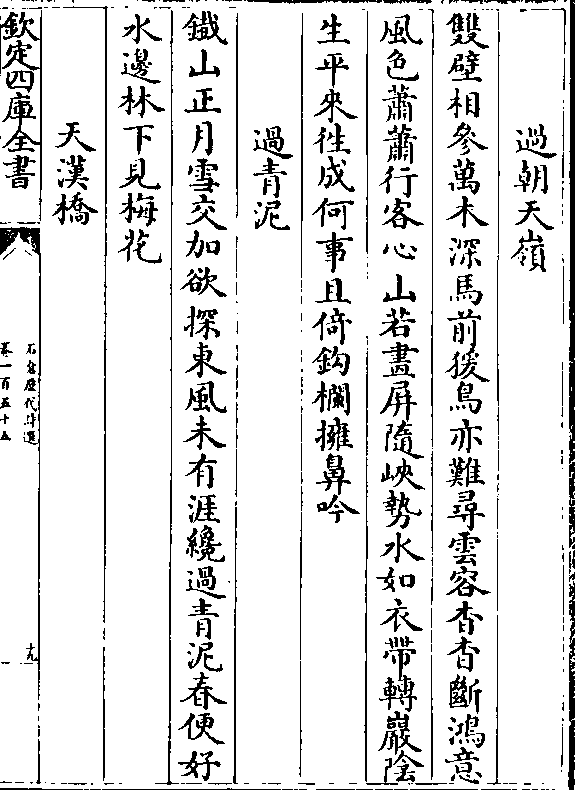 過朝天嶺
雙壁相參萬木深馬前猨鳥亦難尋雲容杳杳斷鴻意
風色蕭蕭行客心山若畫屏隨峽勢水如衣帶轉巖陰
生平來徃成何事且倚鈎欄擁鼻吟
過青泥
鐵山正月雪交加欲探東風未有涯纔過青泥春便好
水邊林下見梅花
天漢橋
欽定四庫全書
石倉歷代詩選
卷一百五十五
十九